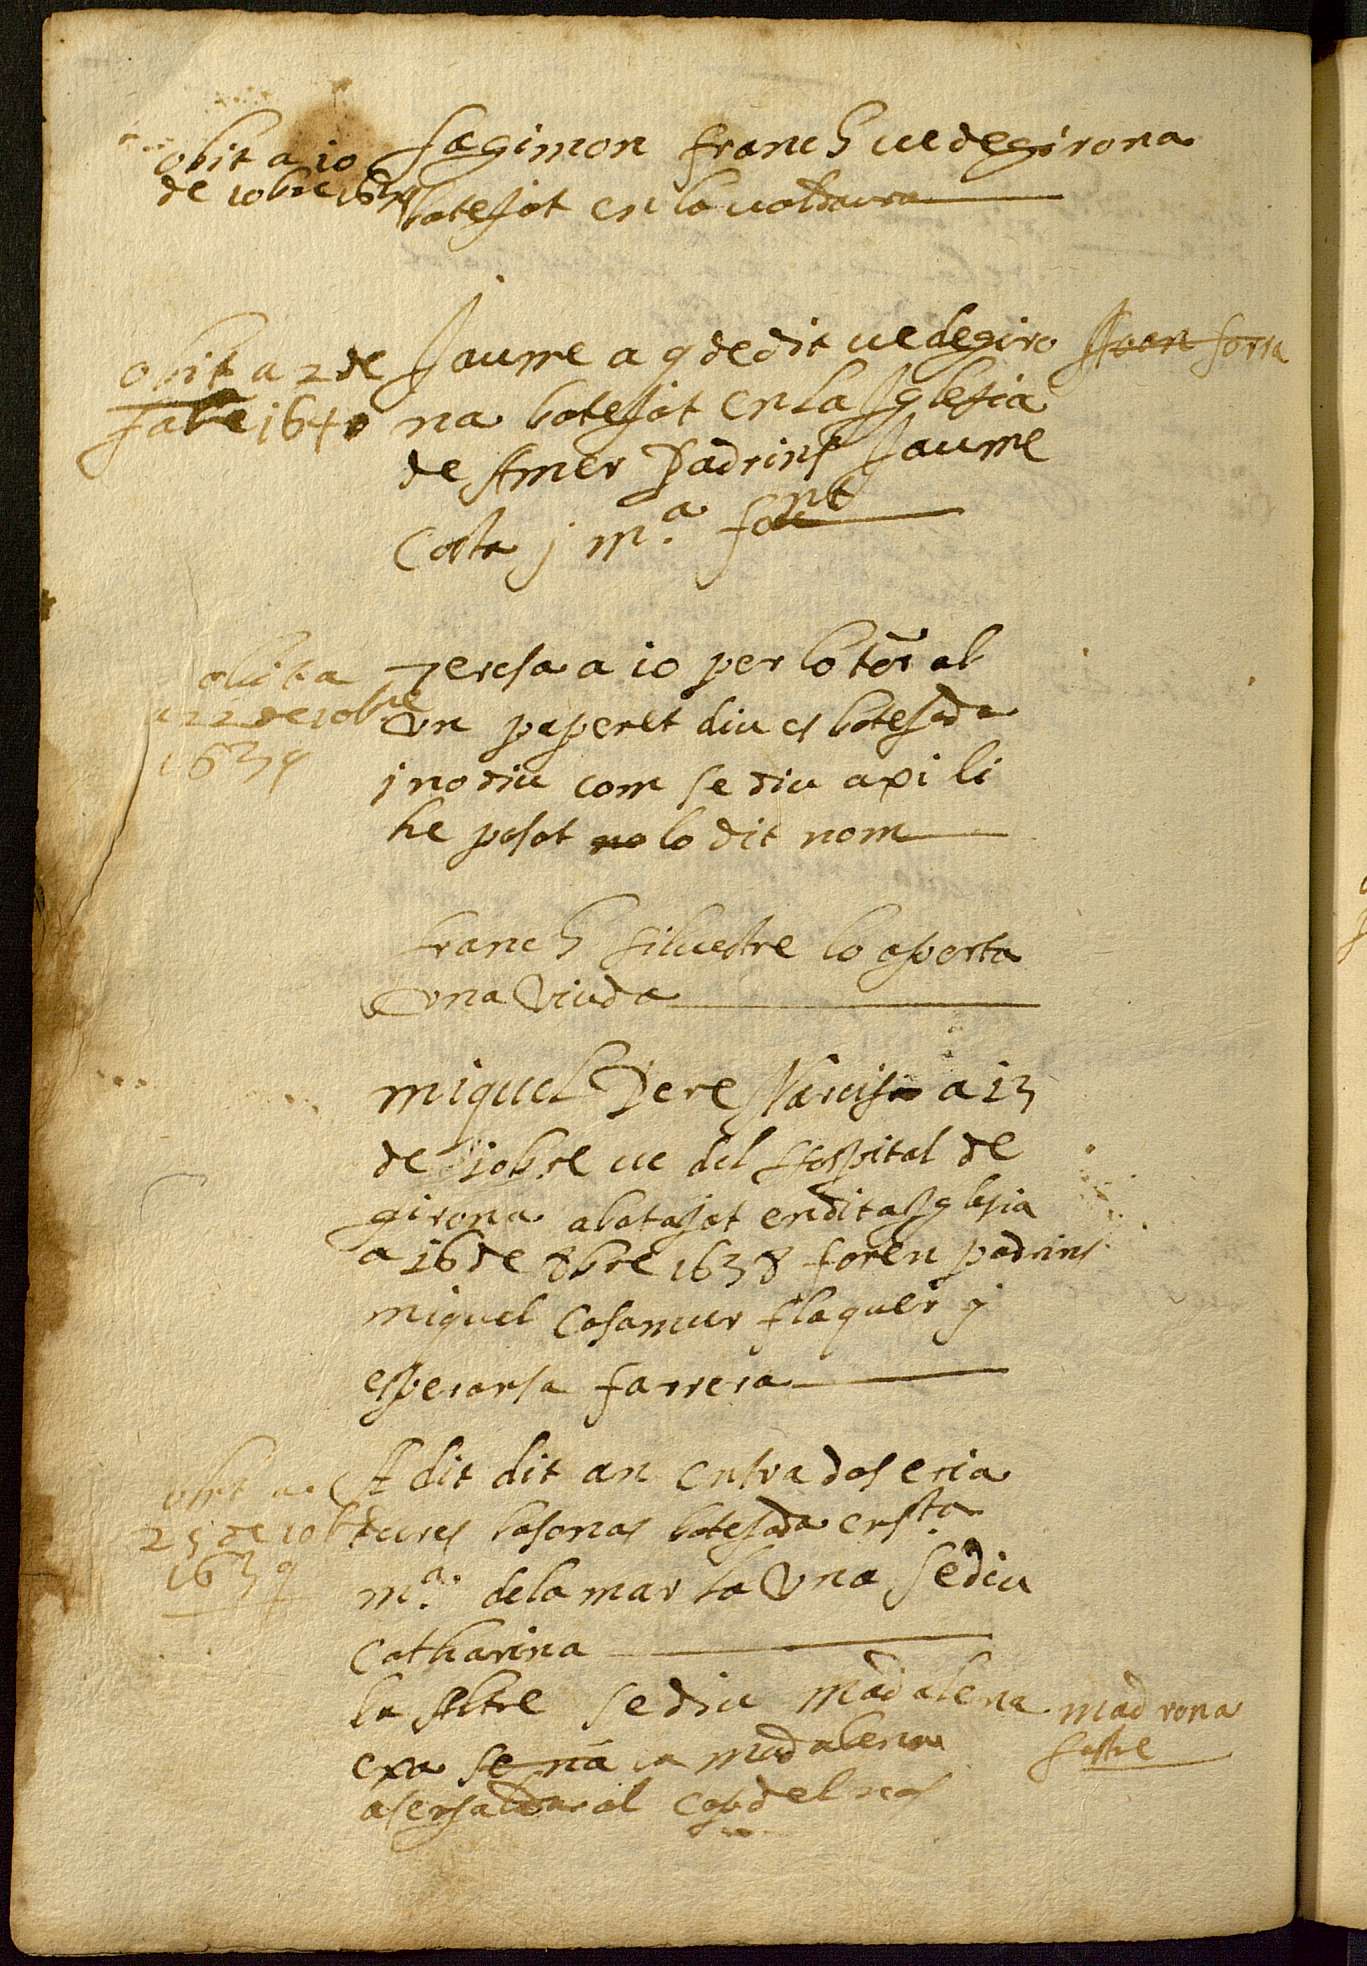 obit a 10
de 10bre 1639
Sagimon franch ve de girona
batejat en la vall daura
obit a 2 de
fabe 1640
Jaume a 9 de dit ve de giro
Joan forra
na batejat en la Jglesia
de Amer Padrins Jaume
Costa j m.ª font
obit a
a 22 de 10bre
1639
Teresa a 10 per lo tor ab
vn paperet diu es batejada
j no diu com se diu axi li
he posat no lo dit nom
franch siluestre lo aporta
vna viuda
miquel Pere Narcis a 13
de 10bre ve del Hospital de
girona abatajat en dita Jglesia
a 16 de 8bre 1638 foren padrins
miquel Casamur flaquer y
esperansa farrera
obit a
25 de 10bre
1639
A dit dit an entra dos cria
tures basonas batejada en sta
m.ª de la mar la vna se diu
Catharina
la Altre se diu Madalena
madrona
sastre
exa se na madalena